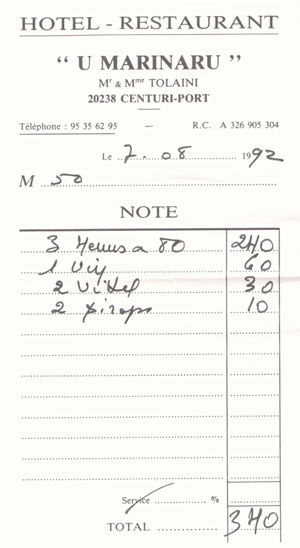 HOTEL - RESTAURANT
“ U MARINARU ”
Mr & Mme TOLAINI
20238 CENTURI-PORT
Téléphone : 95 35 62 95 — R.C. A 326 905 304
Le 7.08 1992
M 50
NOTE
3 Menus a 80 240
1 Vin 60
2 Vittel 30
2 sirops 10
Service %
TOTAL 340